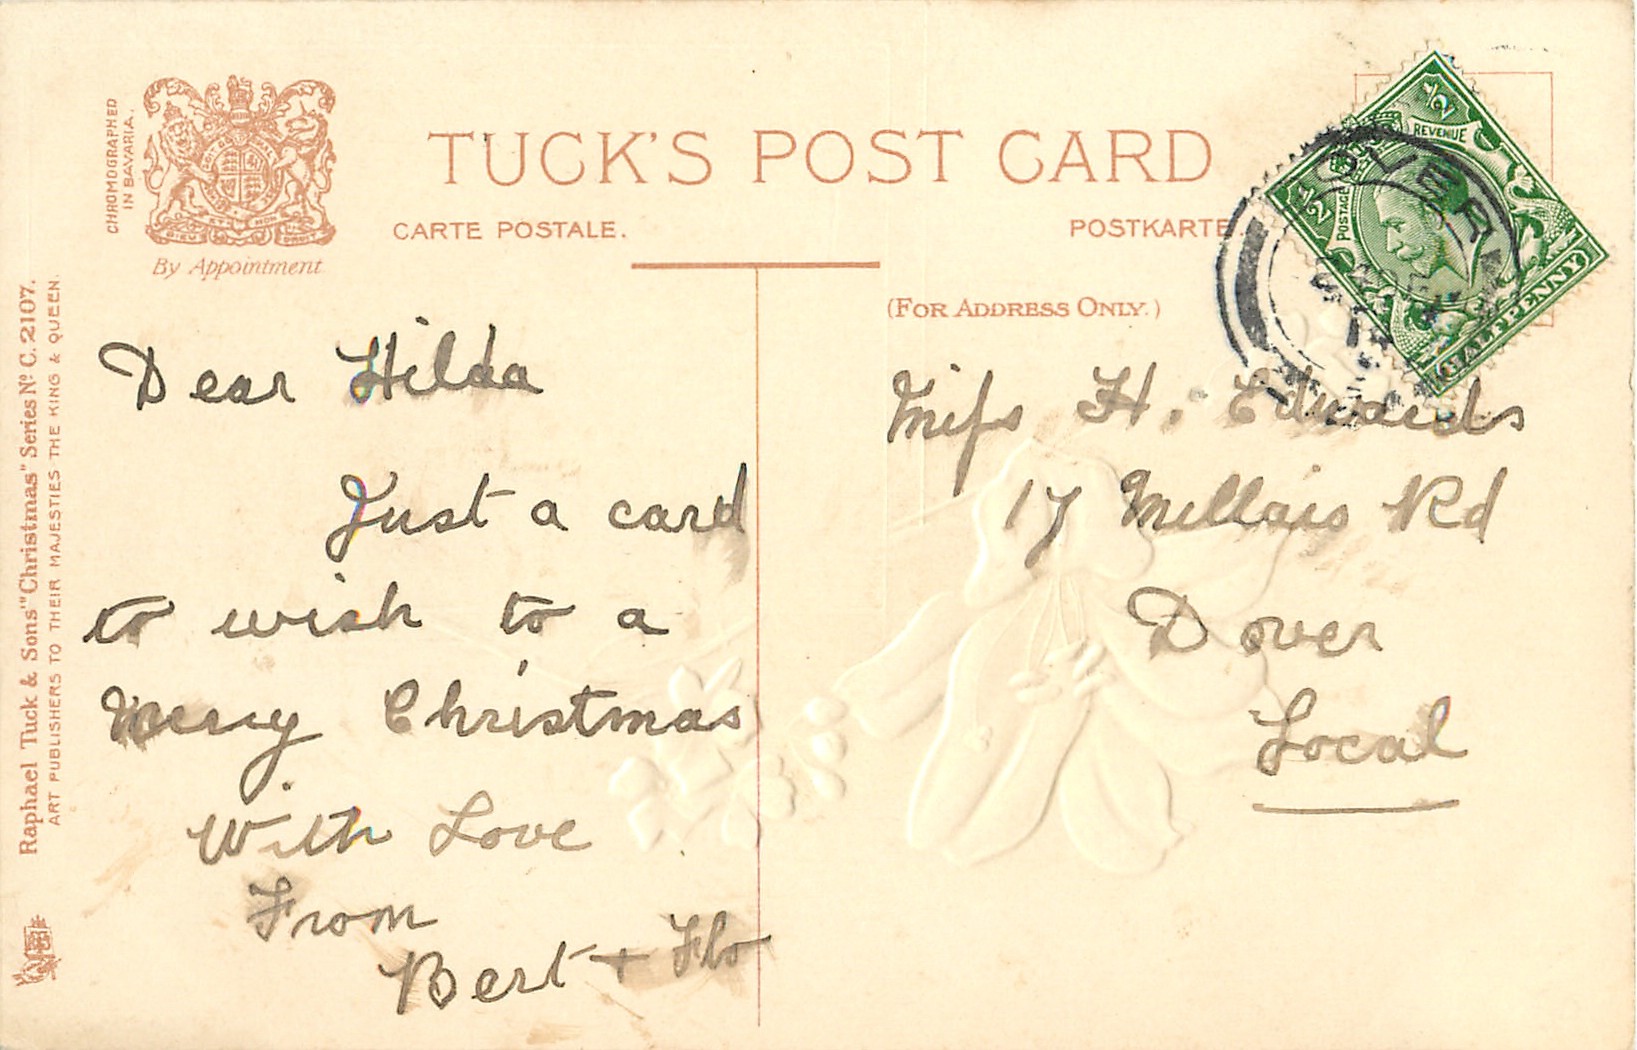 CHROMOGRAPHED
IN BAVARIA.
By Appointment
TUCK'S POST CARD
CARTE POSTALE.
POSTKARTE
(FOR ADDRESS ONLY.)
Raphael Tuck & Sons' "Christmas" Series Nº C. 2107.
ART PUBLISHERS TO THEIR MAJESTIES THE KING & QUEEN.
Dear Hilda
Just a card
to wish to a
Merry Christmas
With Love
From
Bert + Flo
Miss H. Edwards
17 Millais Rd
Dover
Local
½
REVENUE
½
POSTAGE
HALFPENNY
DOVER
DIEU ET MON DROIT